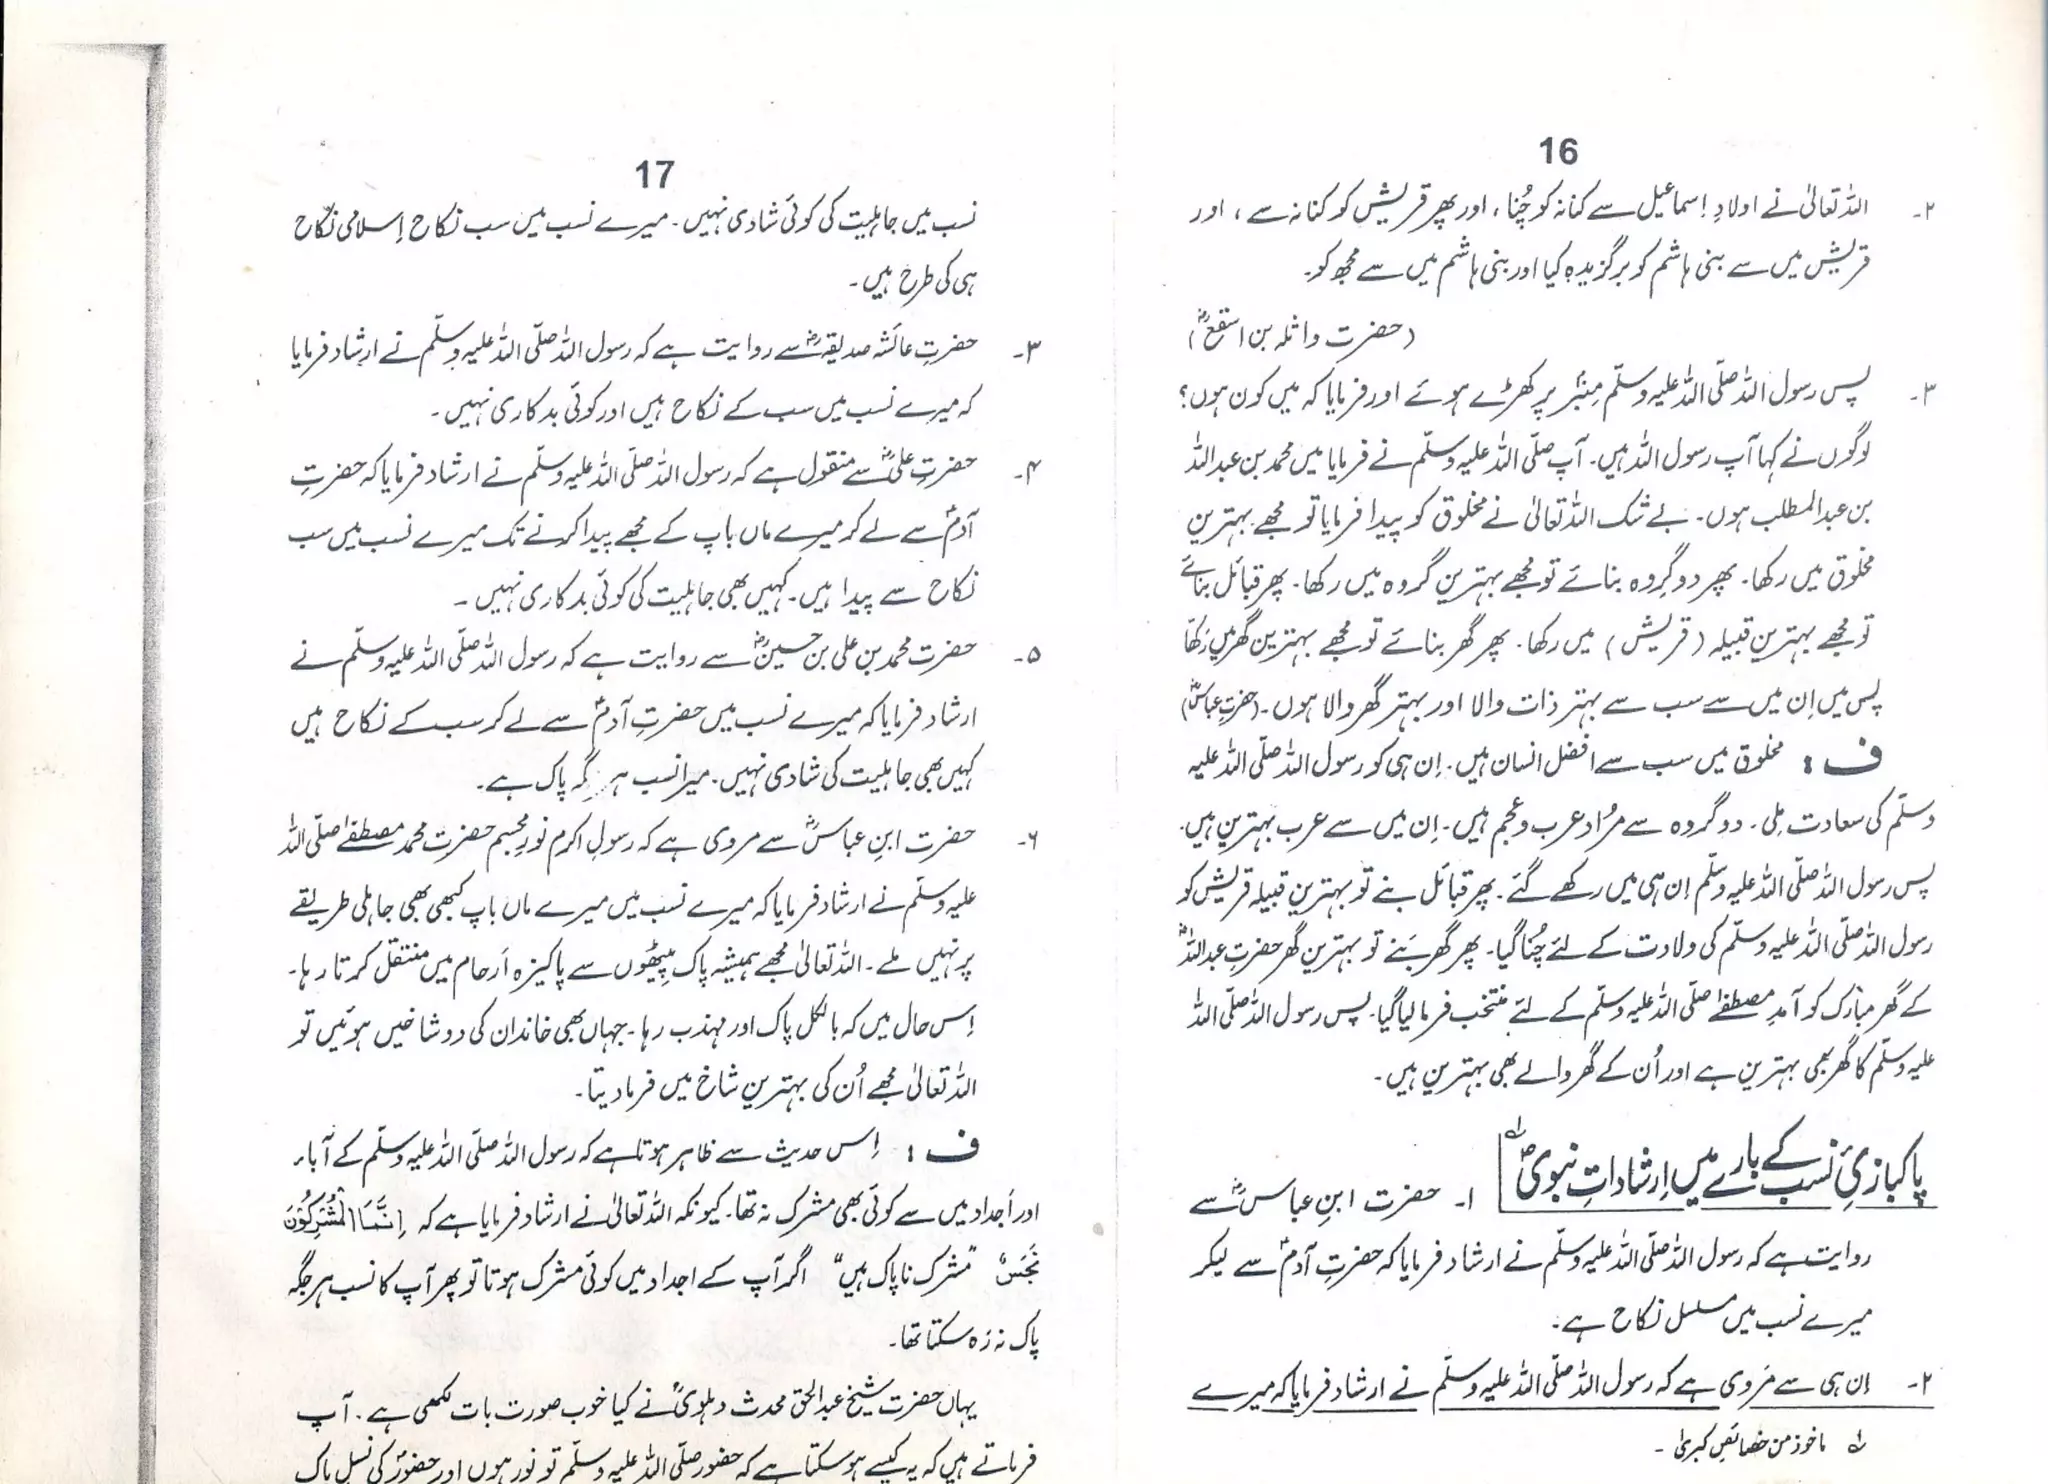 16
۲۔ اللہ تعالیٰ نے اولادِ اِسماعیل سے کنانہ کو چُنا، اور پھر قریش کو کنانہ سے، اور
قریش میں سے بنی ہاشم کو برگزیدہ کیا اور بنی ہاشم میں سے مجھ کو۔
(حضرت واثلہ بن اسقعؓ)
۳۔ پس رسول اللہ صلّی اللہ علیہ وسلّم مِنبر پر کھڑے ہوئے اور فرمایا کہ میں کون ہوں؟
لوگوں نے کہا آپ رسول اللہ ہیں۔ آپ صلّی اللہ علیہ وسلّم نے فرمایا میں محمد بن عبداللہ
بن عبدالمطلب ہوں۔ بے شک اللہ تعالیٰ نے مخلوق کو پیدا فرمایا تو مجھے بہترین
مخلوق میں رکھا۔ پھر دو گروہ بنائے تو مجھے بہترین گروہ میں رکھا۔ پھر قبائل بنائے
تو مجھے بہترین قبیلہ (قریش) میں رکھا۔ پھر گھر بنائے تو مجھے بہترین گھر میں رکھا
پس میں اِن میں سے سب سے بہتر ذات والا اور بہتر گھر والا ہوں۔ (حضرتِ عباسؓ)
ف : مخلوق میں سب سے افضل انسان ہیں۔ اِن ہی کو رسول اللہ صلّی اللہ علیہ
وسلّم کی سعادت مِلی۔ دو گروہ سے مُراد عرب و عجم ہیں۔ اِن میں سے عرب بہترین ہیں۔
پس رسول اللہ صلّی اللہ علیہ وسلّم اِن ہی میں رکھے گئے۔ پھر قبائل بنے تو بہترین قبیلہ قریش کو
رسول اللہ صلّی اللہ علیہ وسلّم کی ولادت کے لئے چُنا گیا۔ پھر گھر بَنے تو بہترین گھر حضرتِ عبداللہؓ
کے گھر مبارک کو آمدِ مصطفےٰ صلّی اللہ علیہ وسلّم کے لئے منتخب فرما لیا گیا۔ پس رسول اللہ صلّی اللہ
علیہ وسلّم کا گھر بھی بہترین ہے اور اُن کے گھر والے بھی بہترین ہیں۔
پاکبازیٔ نسب کے بارے میں اِرشاداتِ نبویؐ
۱۔ حضرت ابنِ عباسؓ سے
روایت ہے کہ رسول اللہ صلّی اللہ علیہ وسلّم نے ارشاد فرمایا کہ حضرتِ آدمؑ سے لیکر
میرے نسب میں مسلسل نکاح ہے۔
۲۔ اِن ہی سے مَروی ہے کہ رسول اللہ صلّی اللہ علیہ وسلّم نے ارشاد فرمایا کہ میرے
لہ ماخوذ من خصائصِ کبریٰ۔
17
نسب میں جاہلیت کی کوئی شادی نہیں۔ میرے نسب میں سب نکاح اِسلامی نکاح
ہی کی طرح ہیں۔
۳۔ حضرتِ عائشہ صدیقہؓ سے روایت ہے کہ رسول اللہ صلّی اللہ علیہ وسلّم نے ارشاد فرمایا
کہ میرے نسب میں سب کے نکاح ہیں اور کوئی بدکاری نہیں۔
۴۔ حضرتِ علیؓ سے منقول ہے کہ رسول اللہ صلّی اللہ علیہ وسلّم نے ارشاد فرمایا کہ حضرتِ
آدمؑ سے لے کر میرے ماں باپ کے مجھے پیدا کرنے تک میرے نسب میں سب
نکاح سے پیدا ہیں۔ کہیں بھی جاہلیت کی کوئی بدکاری نہیں۔
۵۔ حضرت محمد بن علی بن حسینؓ سے روایت ہے کہ رسول اللہ صلّی اللہ علیہ وسلّم نے
ارشاد فرمایا کہ میرے نسب میں حضرتِ آدمؑ سے لے کر سب کے نکاح ہیں
کہیں بھی جاہلیت کی شادی نہیں۔ میرا نسب ہر جگہ پاک ہے۔
۶۔ حضرت ابنِ عباسؓ سے مروی ہے کہ رسولِ اکرم نورِ مجسم حضرتِ محمد مصطفےٰ صلّی اللہ
علیہ وسلّم نے ارشاد فرمایا کہ میرے نسب میں میرے ماں باپ کبھی بھی جاہلی طریقے
پر نہیں ملے۔ اللہ تعالیٰ مجھے ہمیشہ پاک پیٹھوں سے پاکیزہ اَرحام میں منتقل کرتا رہا۔
اِس حال میں کہ بالکل پاک اور مہذب رہا۔ جہاں بھی خاندان کی دو شاخیں ہوئیں تو
اللہ تعالیٰ مجھے اُن کی بہترین شاخ میں فرما دیتا۔
ف : اِس حدیث سے ظاہر ہوتا ہے کہ رسول اللہ صلّی اللہ علیہ وسلّم کے آباء
اور اَجداد میں سے کوئی بھی مشرک نہ تھا۔ کیونکہ اللہ تعالیٰ نے ارشاد فرمایا ہے کہ اِنَّمَا الْمُشْرِکُوْنَ
نَجَسٌ "مشرک ناپاک ہیں" اگر آپ کے اجداد میں کوئی مشرک ہوتا تو پھر آپ کا نسب ہر جگہ
پاک نہ رَہ سکتا تھا۔
یہاں حضرت شیخ عبدالحق محدث دہلویؒ نے کیا خوب صورت بات لکھی ہے۔ آپ
فرماتے ہیں کہ یہ کیسے ہو سکتا ہے کہ حضور صلّی اللہ علیہ وسلّم تو نور ہوں اور حضورؐ کی نسل پاک